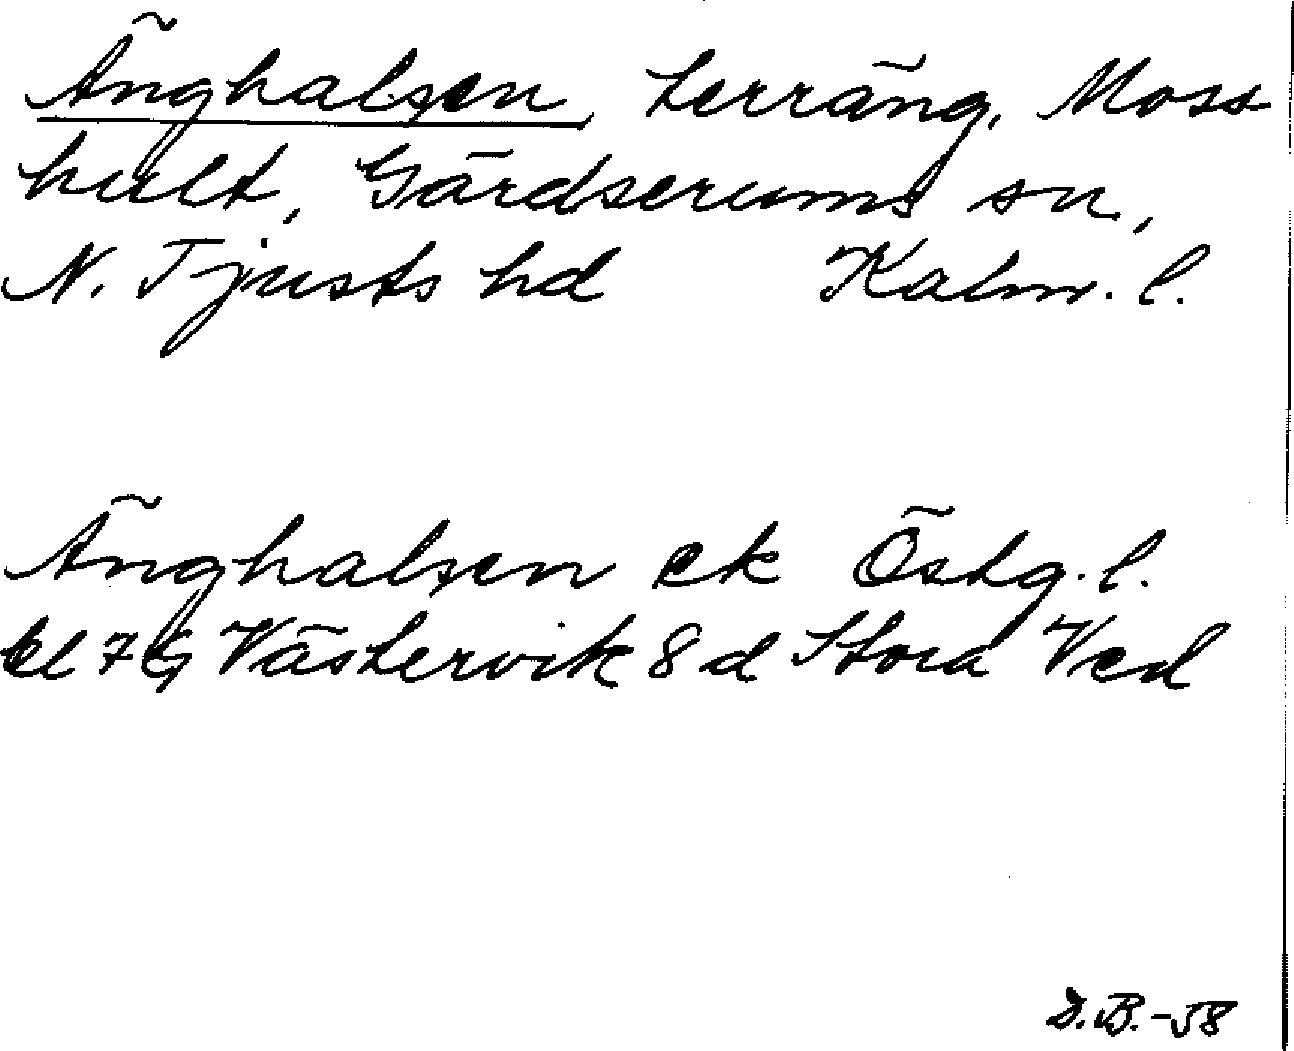 Änghalsen, terräng, Moss
hult, Gärdserums sn,
N. Tjusts hd Kalm. l.
Änghalsen ek Östg. l.
bl 7G Västervik 8 d Stora Ved
D.B.-58